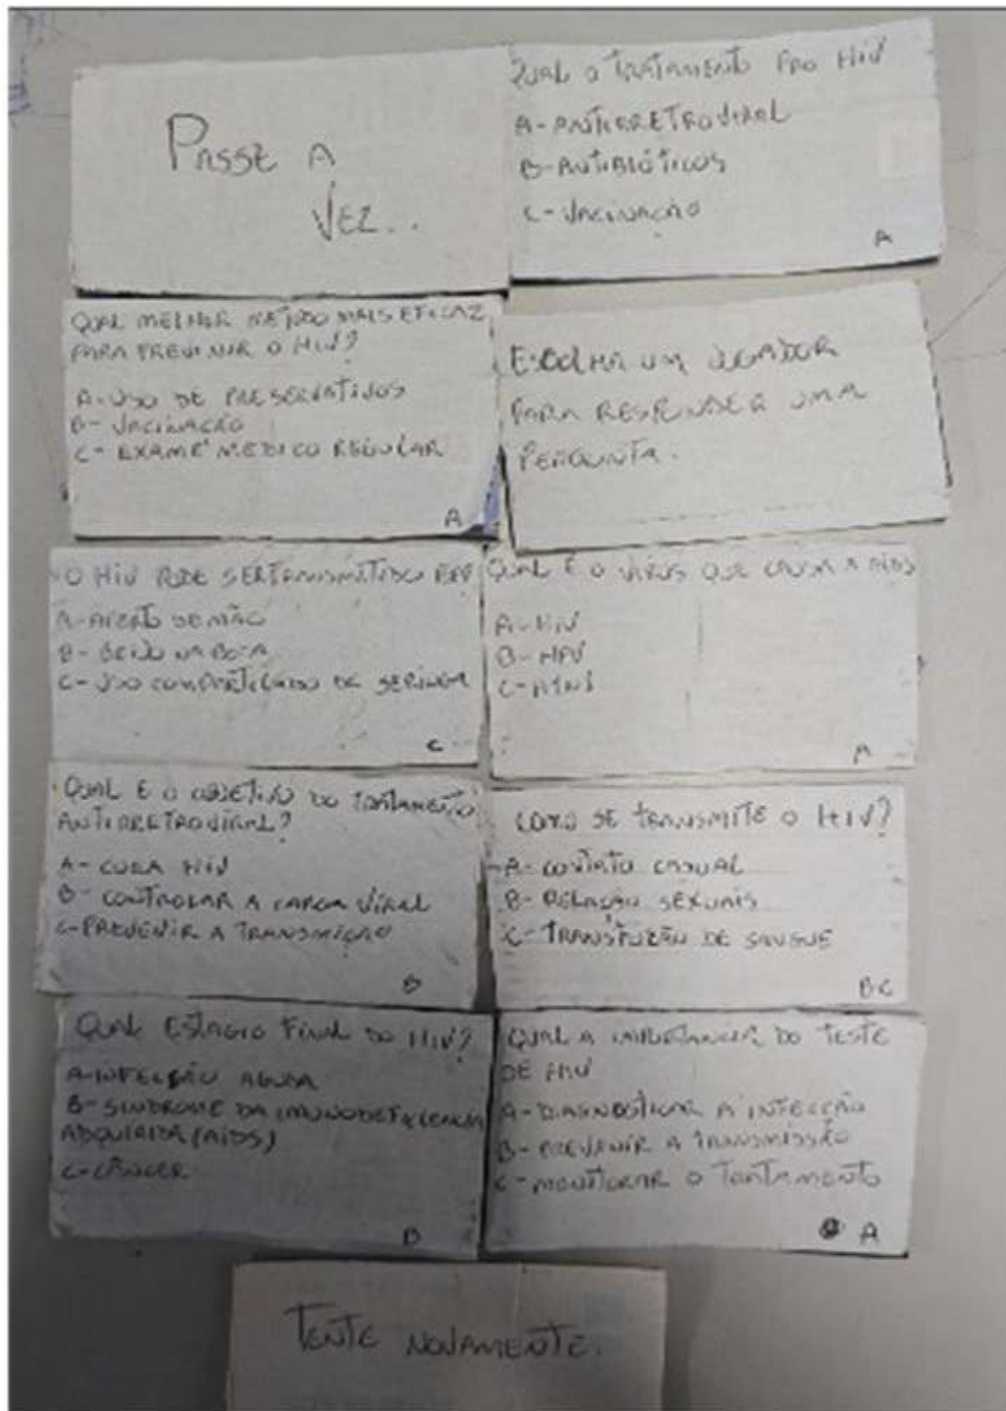 PASSE A
VEZ..
QUAL O TRATAMENTO PRO HIV
A- ANTIRRETROVIRAL
B- ANTIBIÓTICOS
C- VACINAÇÃO
A
QUAL MELHOR METODO MAIS EFICAZ
PARA PREVINIR O HIV?
A- USO DE PRESERVATIVOS
B- VACINAÇÃO
C- EXAME MEDICO REGULAR
A
ESCOLHA UM JOGADOR
PARA RESPONDER UMA
PERGUNTA.
O HIV PODE SER TRANSMITIDO POR
A- APERTO DE MÃO
B- BEIJO NA BOCA
C- USO COMPARTILHADO DE SERINGA
C
QUAL É O VIRUS QUE CAUSA A AIDS
A- HIV
B- HPV
C- H1N1
A
QUAL É O OBJETIVO DO TRATAMENTO
ANTIRRETROVIRAL?
A- CURA HIV
B- CONTROLAR A CARGA VIRAL
C- PREVENIR A TRANSMIÇÃO
B
COMO SE TRANSMITE O HIV?
A- CONTATO CASUAL
B- RELAÇÃO SEXUAIS
C- TRANSFUZÃO DE SANGUE
BC
QUAL ESTAGIO FINAL DO HIV?
A- INFECÇÃO AGUDA
B- SINDROME DA IMUNODEFICIENCIA
ADQUIRIDA (AIDS)
C- CÂNCER
B
QUAL A IMPORTANCIA DO TESTE
DE HIV
A- DIAGNOSTICAR A INFECÇÃO
B- PREVENIR A TRANSMISSÃO
C- MONITORAR O TRATAMENTO
A
TENTE NOVAMENTE.